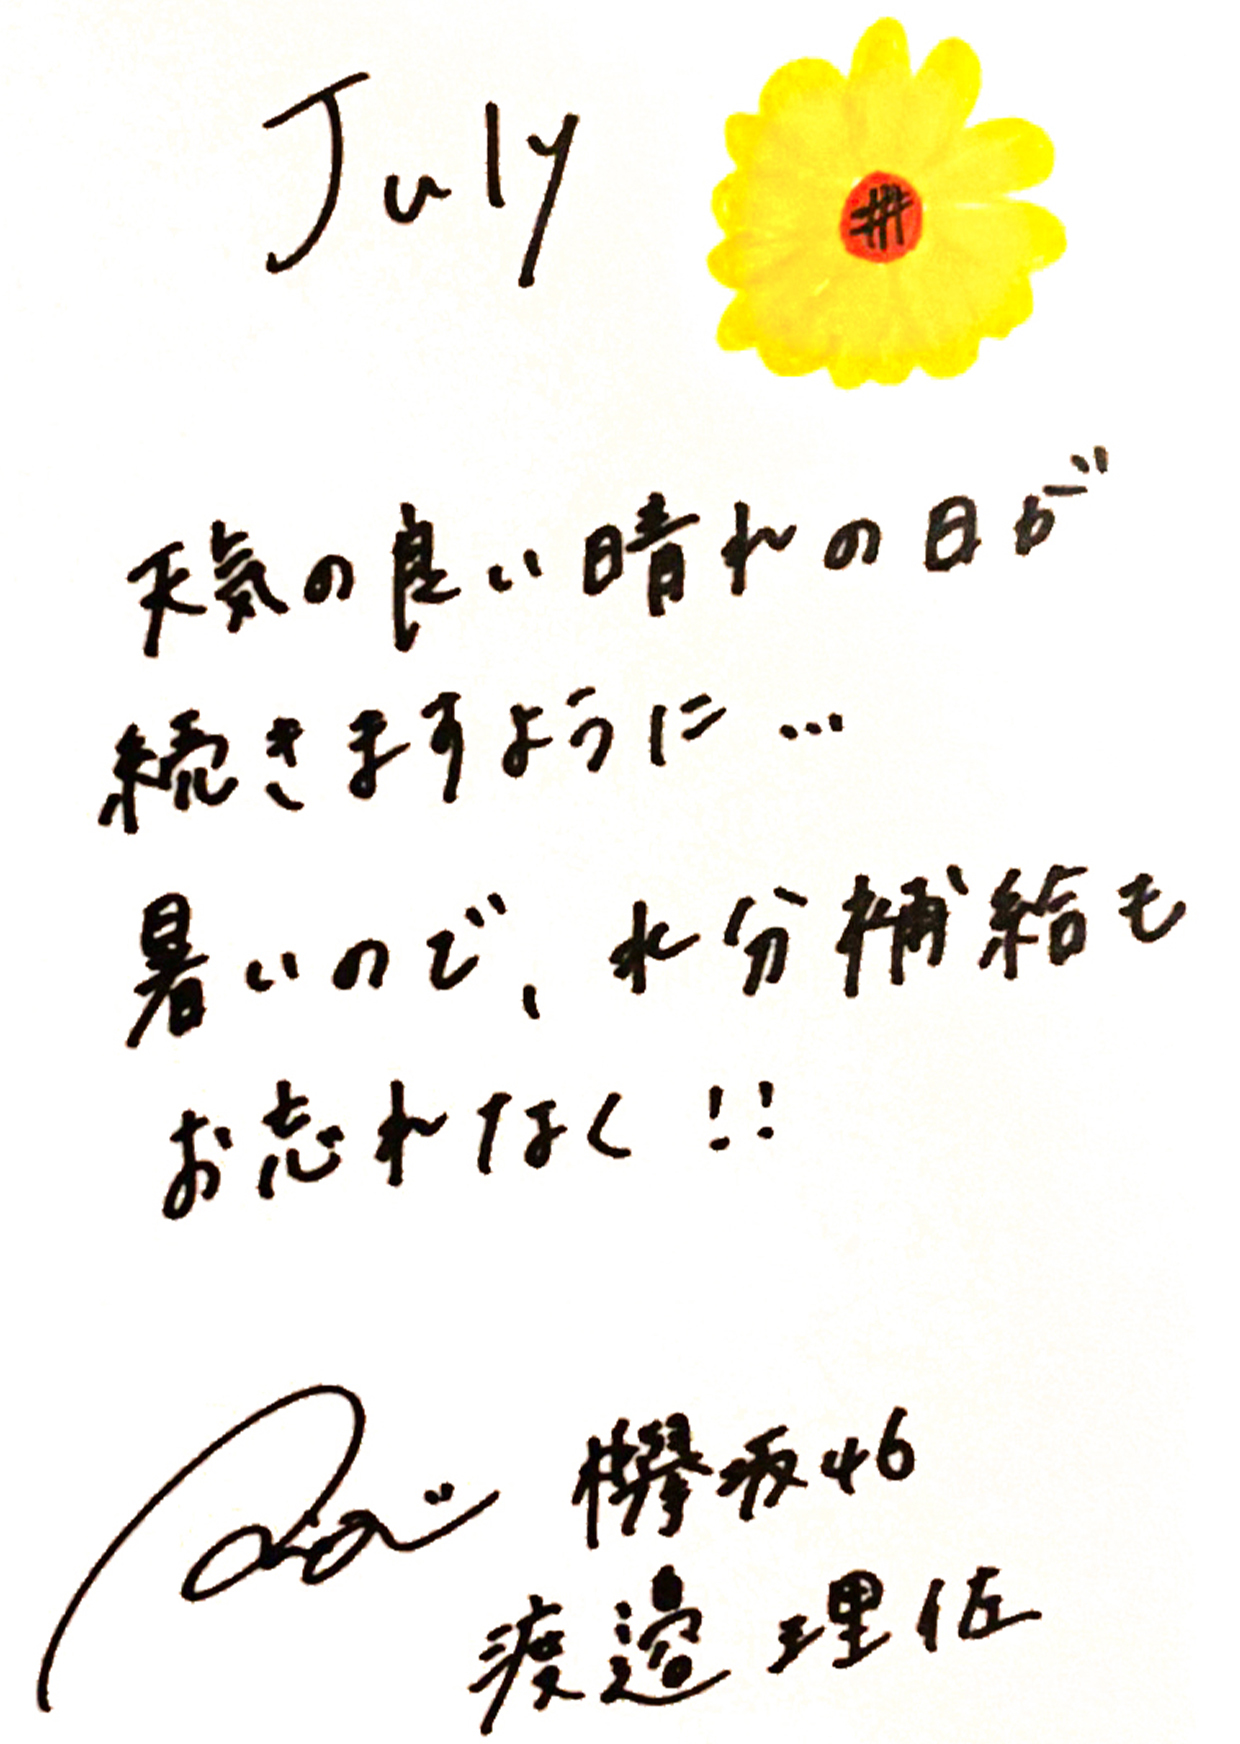 July
天気の良い晴れの日が
続きますように…
暑いので、水分補給も
お忘れなく!!
欅坂46
渡邉理佐